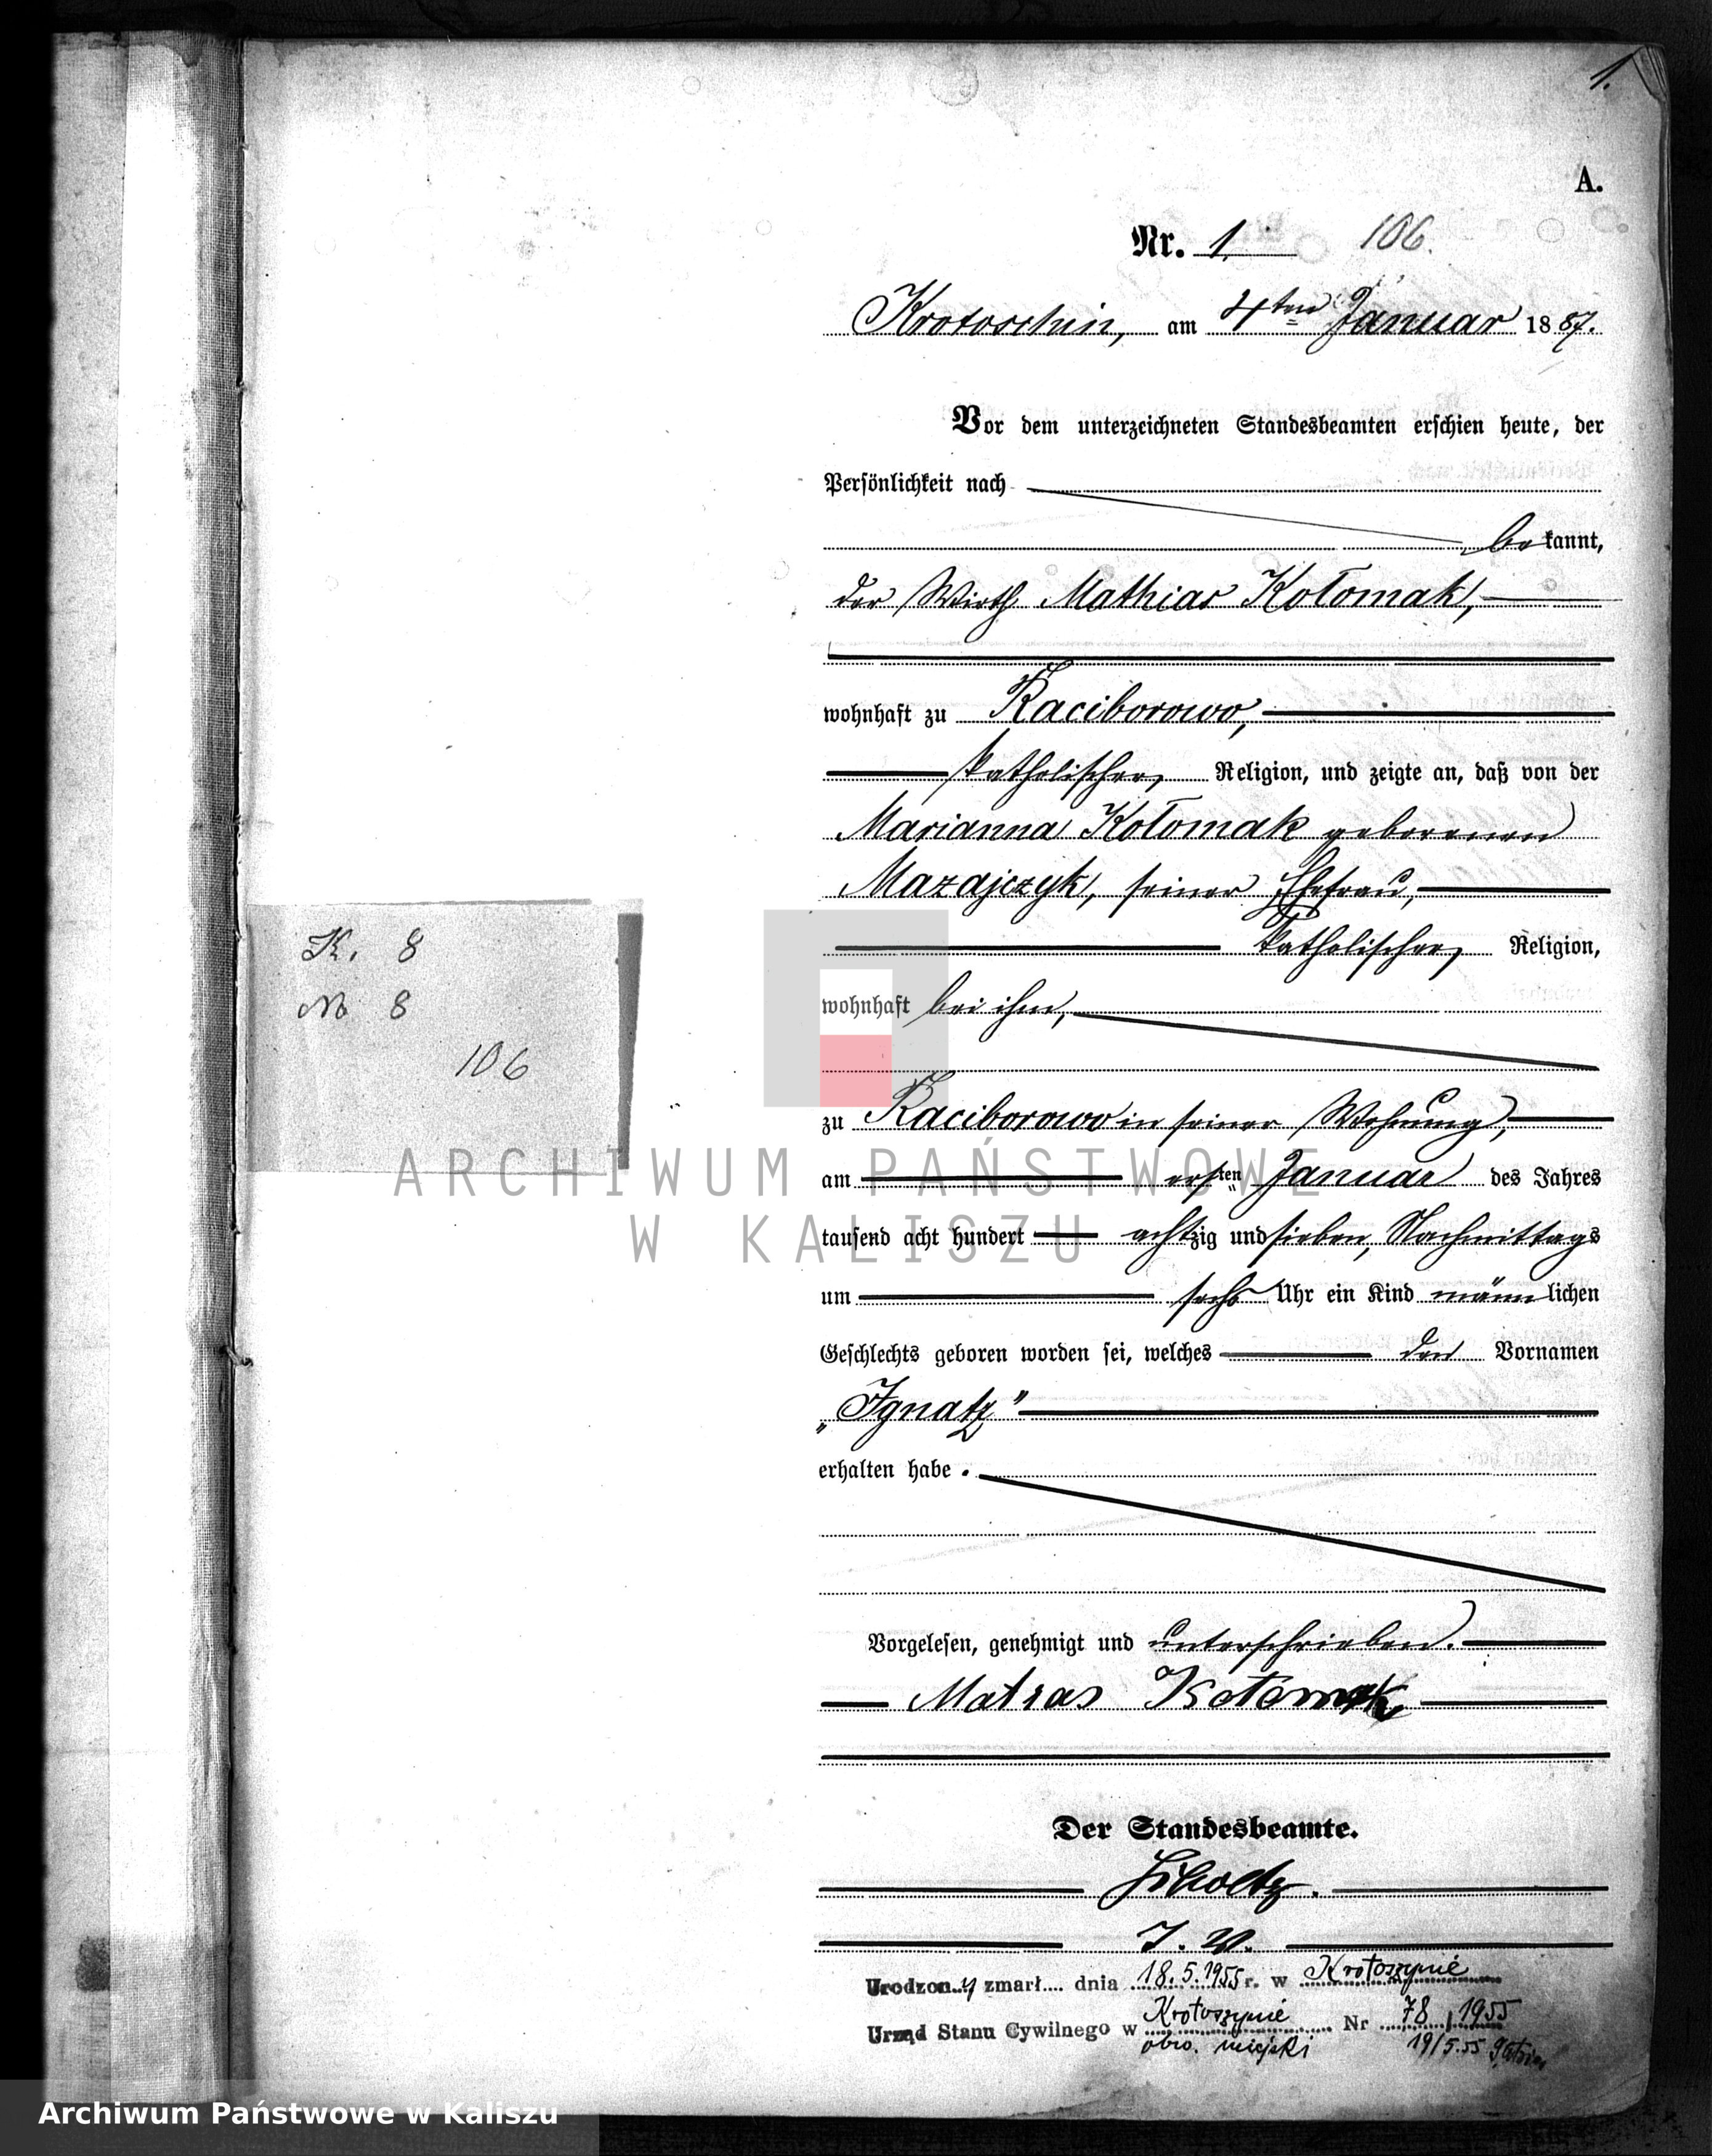 1.
A.
Nr. 1. 106.
Krotoschin, am 4ten Januar 1887.
Vor dem unterzeichneten Standesbeamten erschien heute, der
Persönlichkeit nach
bekannt,
der Wirth Mathias Kołomak,
wohnhaft zu Raciborowo,
katholischer Religion, und zeigte an, daß von der
Marianna Kołomak geborenen
Mazajczyk, seiner Ehefrau,
katholischer Religion,
wohnhaft bei ihm,
zu Raciborowo in seiner Wohnung,
am ersten Januar des Jahres
tausend acht hundert achtzig und sieben, Nachmittags
um sechs Uhr ein Kind männlichen
Geschlechts geboren worden sei, welches den Vornamen
„Ignatz”
erhalten habe.
Vorgelesen, genehmigt und unterschrieben.
Matias Kotomak
Der Standesbeamte.
Scholtz.
I. V.
Urodzony zmarł.... dnia 18.5.1955 r. w Krotoszynie
Urząd Stanu Cywilnego w Krotoszynie Nr 78/1955
obw. miejski 19/5.55
K. 8
No 8
106
ARCHIWUM PAŃSTWOWE
W KALISZU
Archiwum Państwowe w Kaliszu